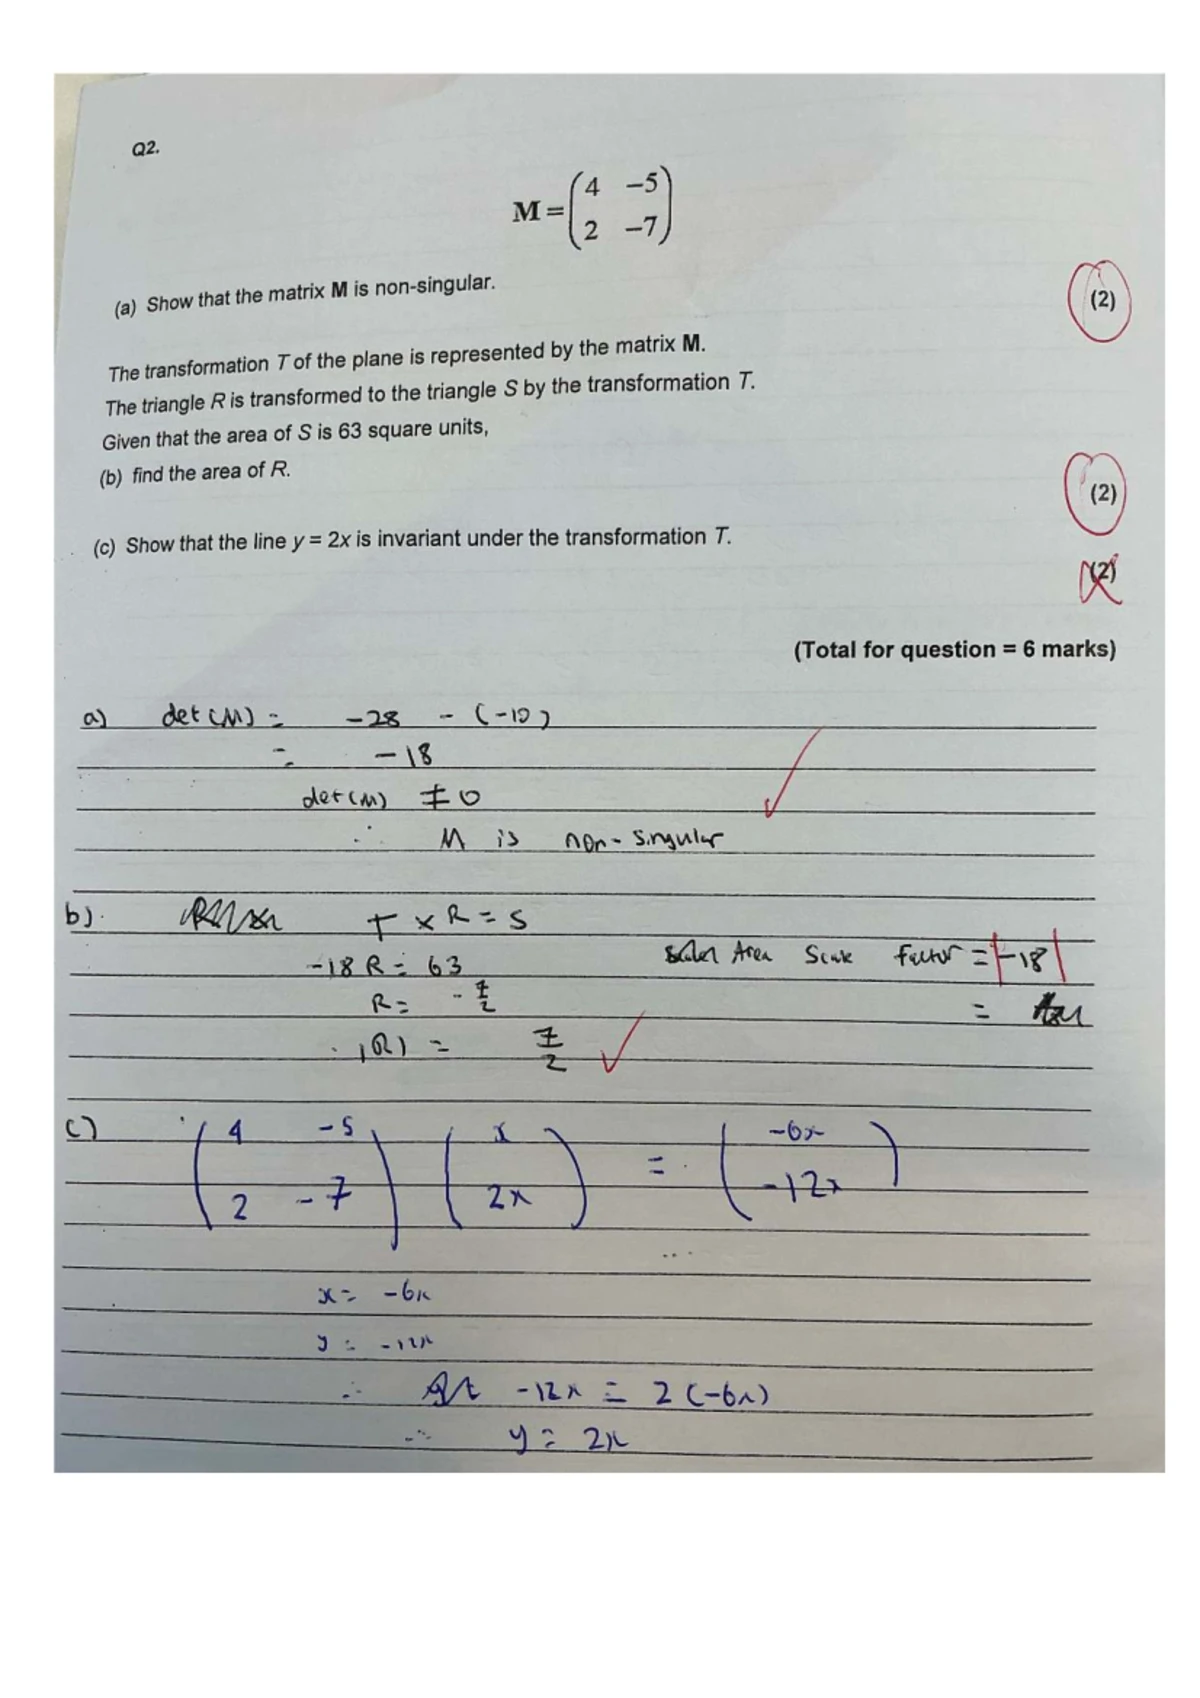 Q2.
M = (4 −5
2 −7)
(a) Show that the matrix M is non-singular.
(2)
The transformation T of the plane is represented by the matrix M.
The triangle R is transformed to the triangle S by the transformation T.
Given that the area of S is 63 square units,
(b) find the area of R.
(2)
(c) Show that the line y = 2x is invariant under the transformation T.
(2)
(Total for question = 6 marks)
a) det(M) = -28 - (-10)
= -18
det(M) ≠ 0
∴ M is non-singular
b). T × R = S
Area Scale Factor = |-18|
-18 R = 63
R = -7/2
=
|R| = 7/2
c) (4 -5
2 -7) (x
2x) = (-6x
-12x)
x = -6x
y = -12x
∴ -12x = 2(-6x)
∴ y = 2x